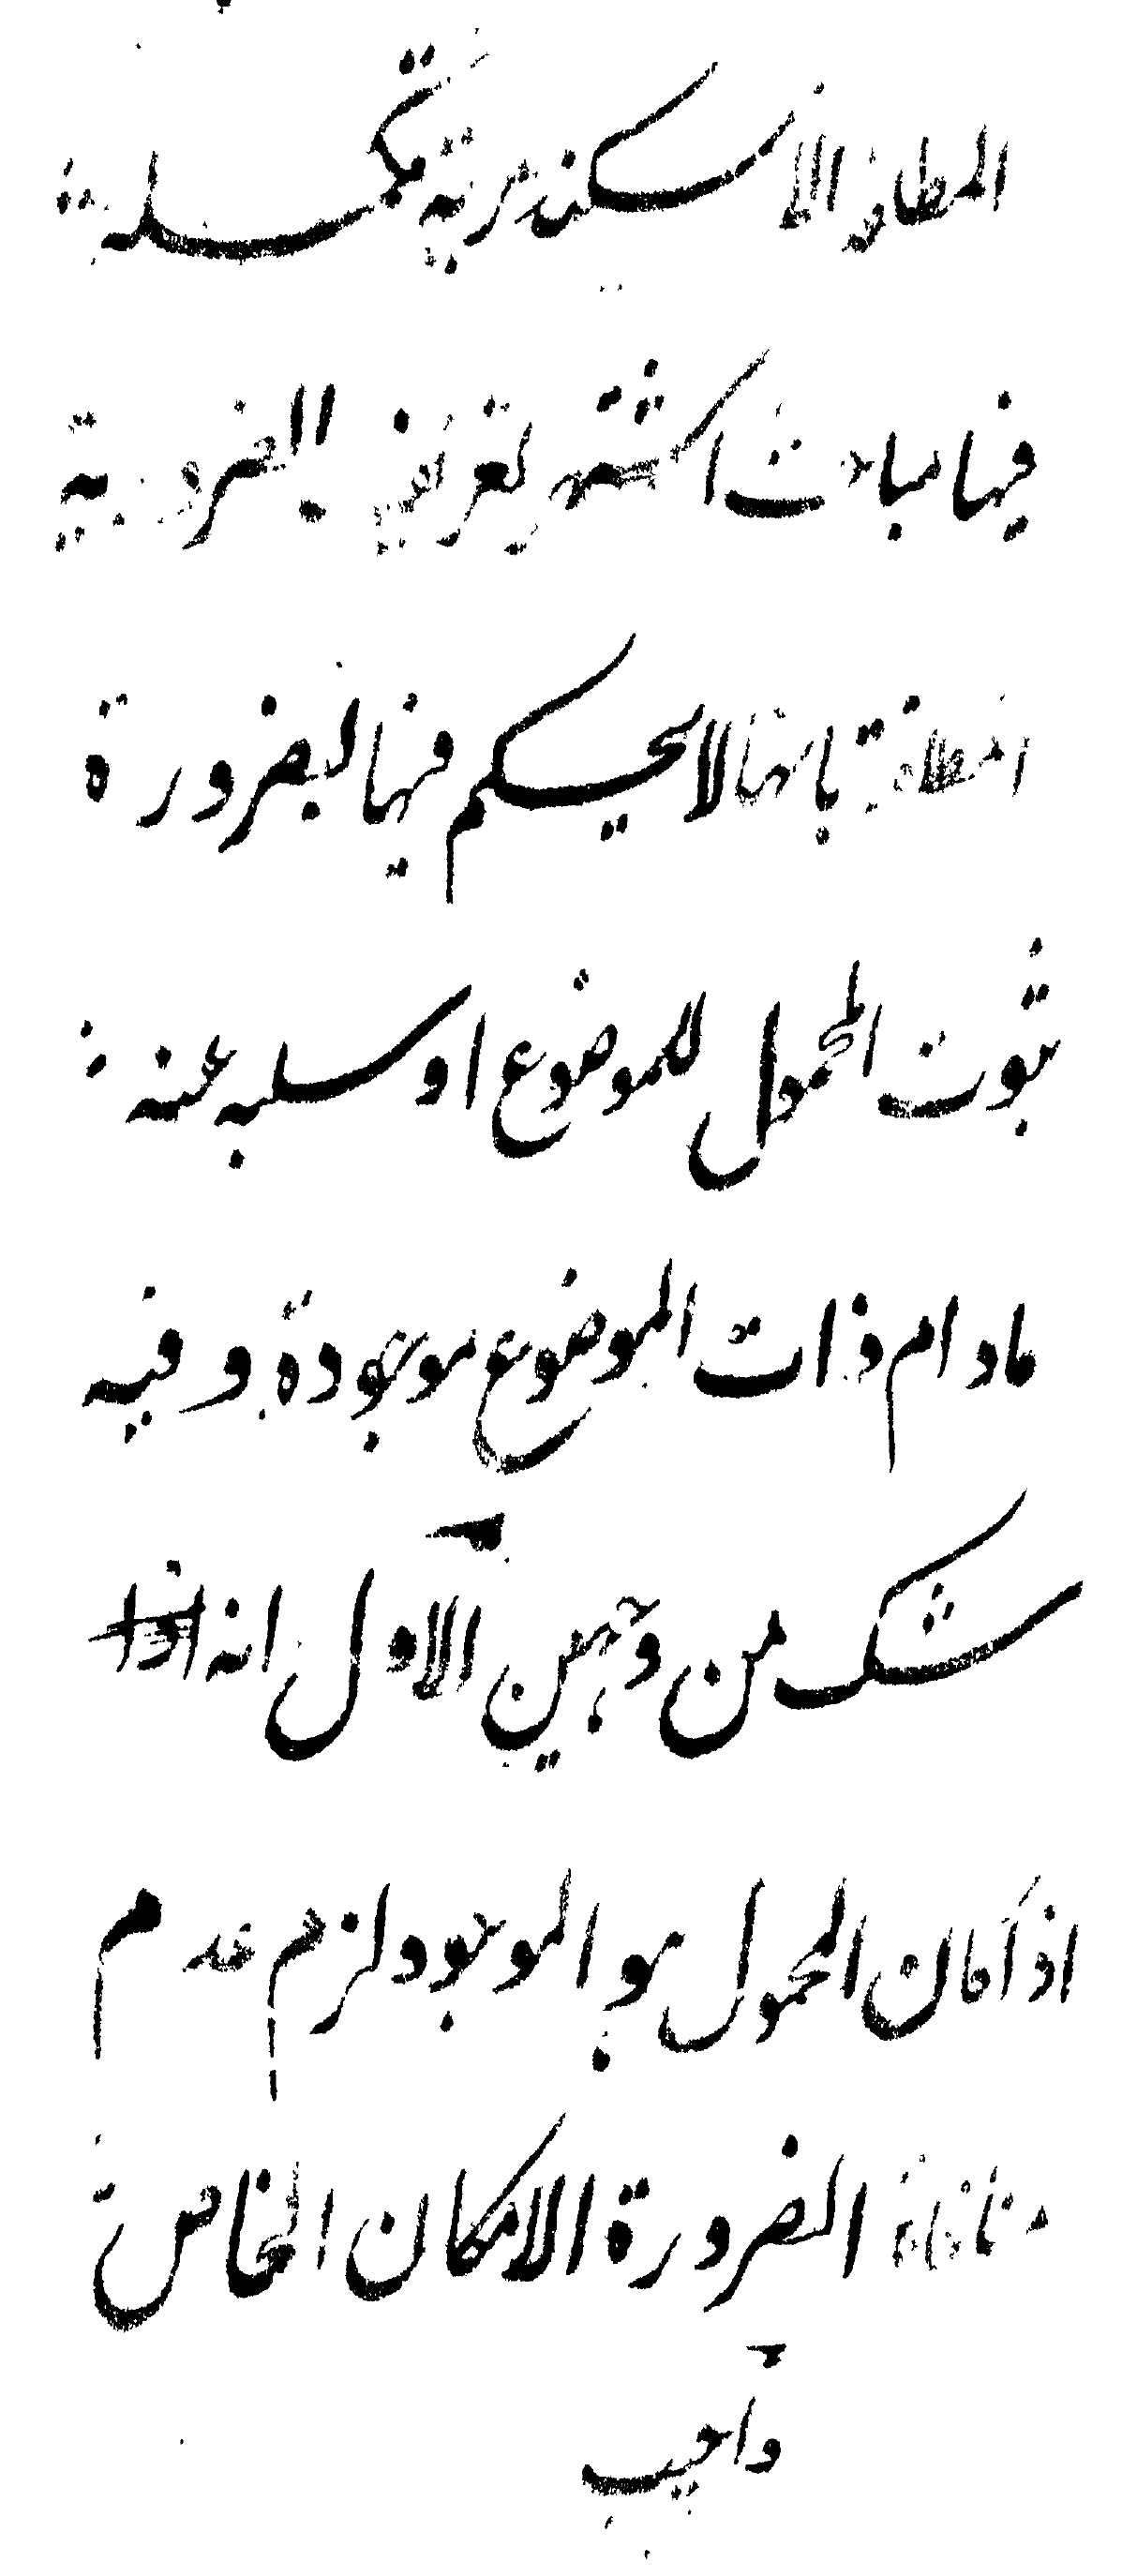 المطلقة الاسكندرية تكملة
فيها مباحث اشتهر تعريف الضرورية
المطلقة بانها لا يحكم فيها لبضرورة
ثبوت المحمول للموضوع او سلبه عنه
مادام ذات الموضوع موجودة وفيه
شك من وجهين الاول انه اذا
اذا كان المحمول هو الموجود لزم عدم
منافاة الضرورة الامكان الخاص
واجيب